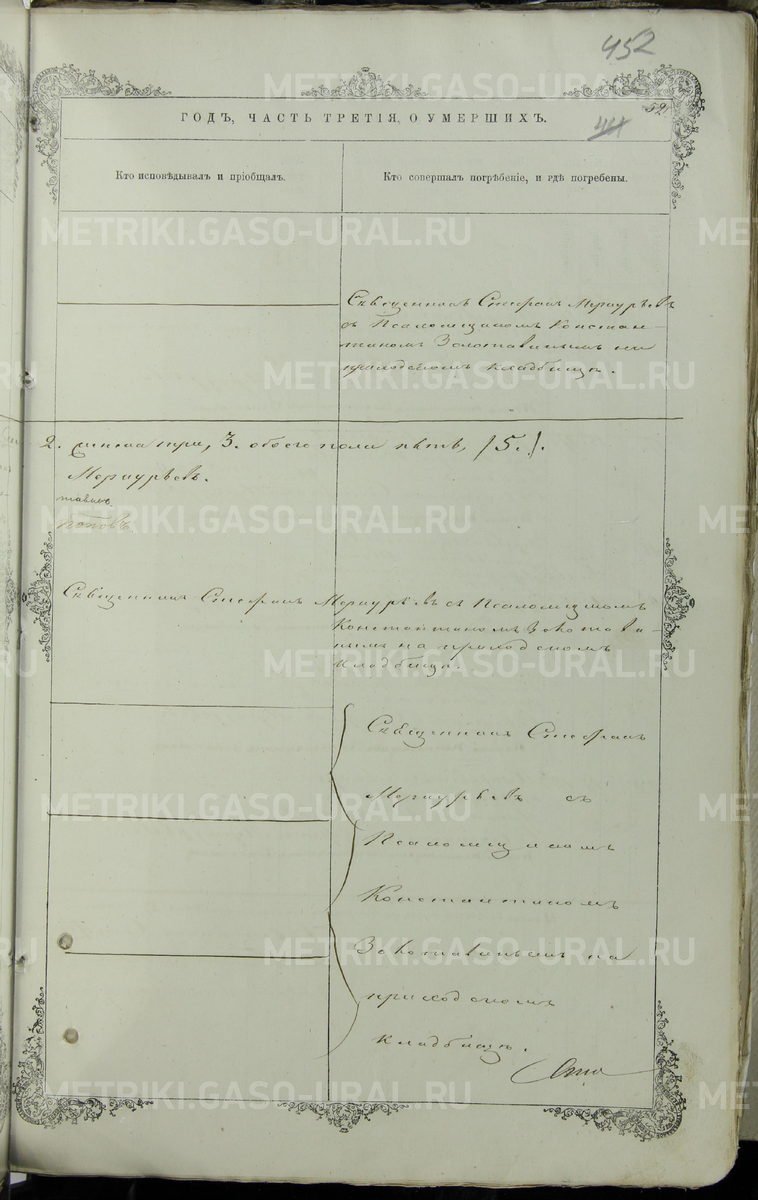 452
52
ГОДЪ, ЧАСТЬ ТРЕТІЯ, О УМЕРШИХЪ.
Кто исповѣдывалъ и пріобщалъ.
Кто совершалъ погрѣбеніе, и гдѣ погребены.
Священникъ Стефанъ Меркурьевъ
съ Псаломщикомъ Констан-
тиномъ Золотавинымъ на
приходскомъ кладбищѣ.
2. женска три, 3. обоего пола пять, /5./.
Меркурьевъ.
тавинъ
Поповъ
Священникъ Стефанъ Меркурьевъ съ Псаломщикомъ
Константиномъ Золотави-
нымъ на приходскомъ
кладбищѣ.
Священникъ Стефанъ
Меркурьевъ съ
Псаломщикомъ
Константиномъ
Золотавинымъ на
приходскомъ
кладбищѣ.
METRIKI.GASO-URAL.RU